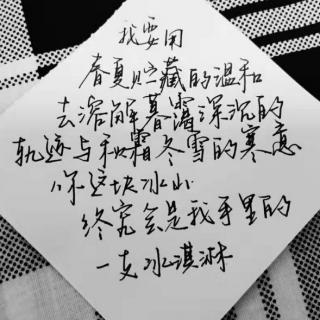 我要用
春夏贮藏的温和
去溶解暮霭深沉的
轨迹与秋霜冬雪的寒意
你这块冰山
终究会是我手里的
一支冰淇淋